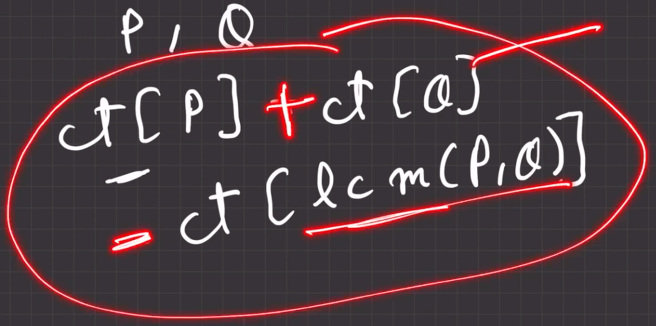 P, Q
ct[P] + ct[Q]
- ct[lcm(P,Q)]